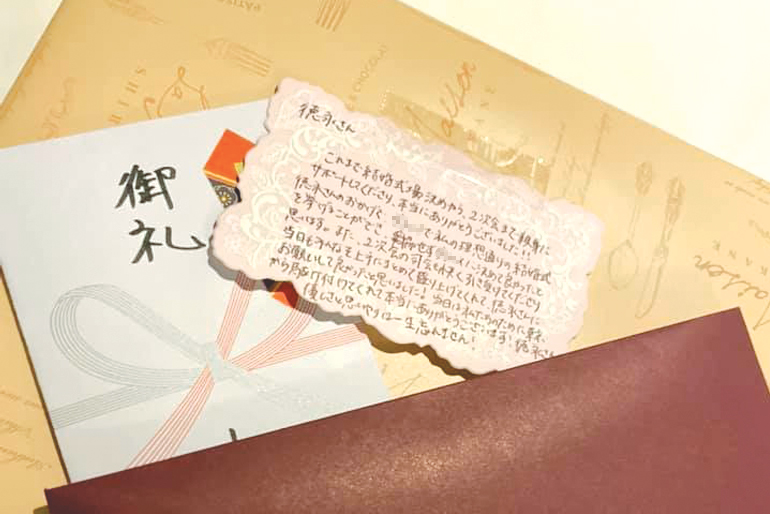 御
礼
徳永さん
これまで結婚式場決めから、2次会まで親身に
サポートしてくださり、本当にありがとうございました!!
徳永さんのおかげで、 で私の理想通りの結婚式
を挙げることができ、 に決めて良かったと
思います。また、2次会の司会も快く引き受けてくださり
当日もみんなを上手にまとめて盛り上げてくれて徳永さんに
お願いして良かったと思いました!当日は私たちのために東京
から駆け付けてくれて本当にありがとうございます!徳永さんの
優しさ、思いやりは一生忘れません!
Maison
Maison